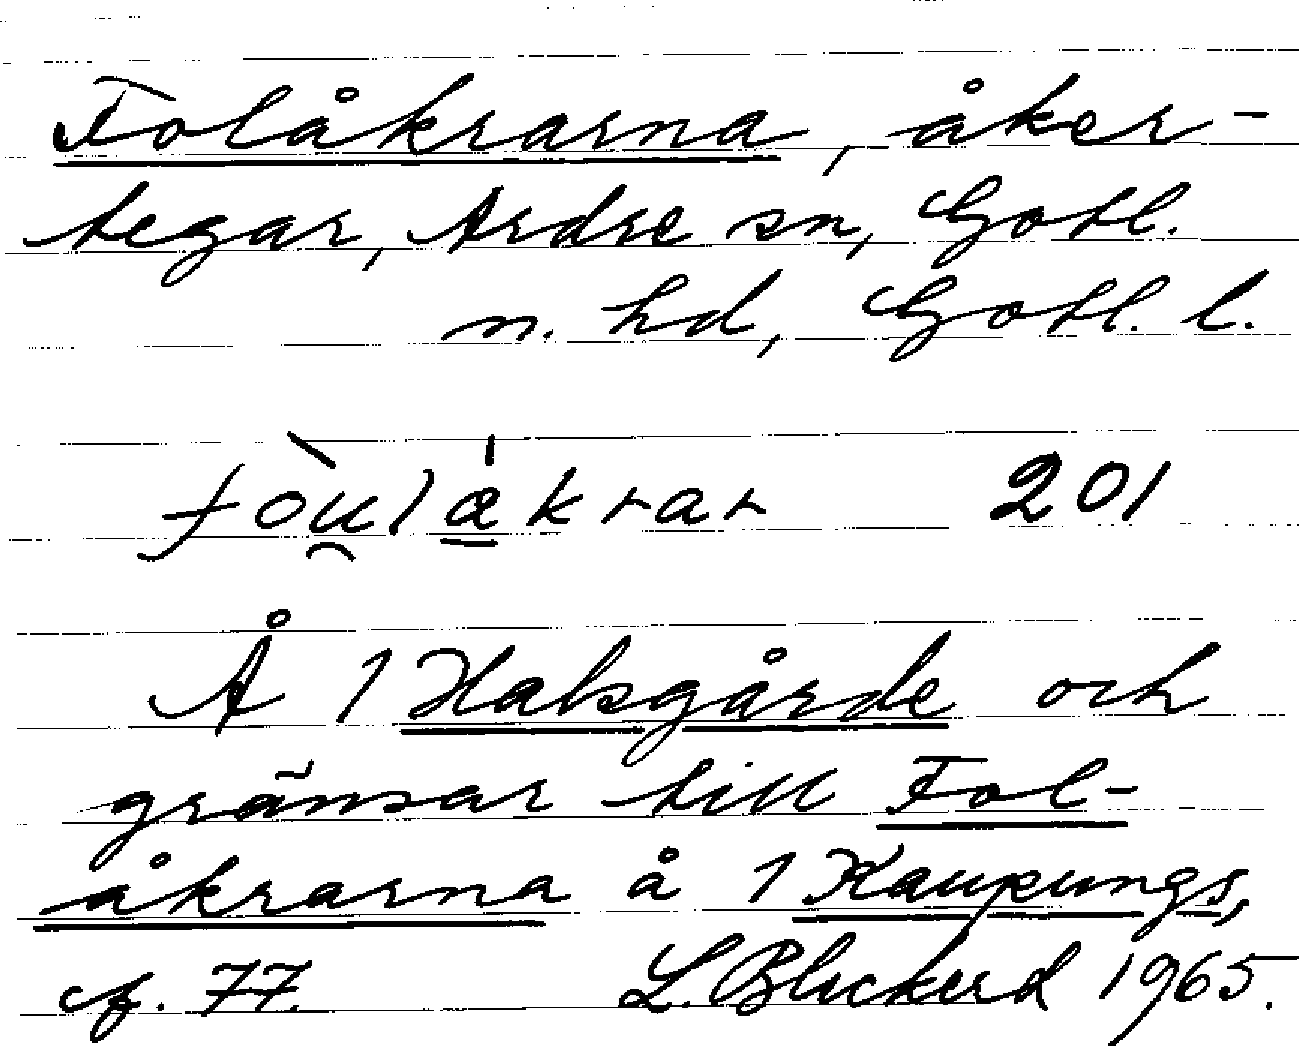 Folåkrarna, åker-
tegar, Ardre sn, Gotl.
n. hd, Gotl. l.
fòu̯lá̳krar 201
Å 1 Halsgårde och
gränsar till Fol-
åkrarna å 1 Kaupungs,
cf. 77. L. Bluckerd 1965.